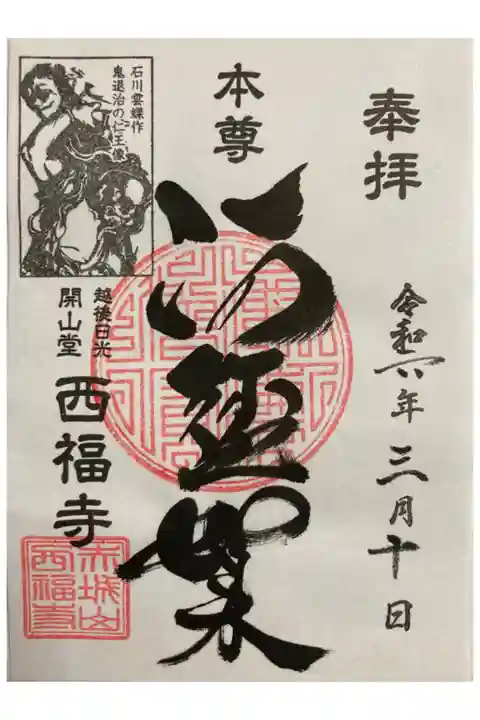 奉拝
令和六年三月十日
本尊
阿弥陀如来
石川雲蝶作
鬼退治の仁王像
越後日光
開山堂
西福寺
赤城山
西福寺